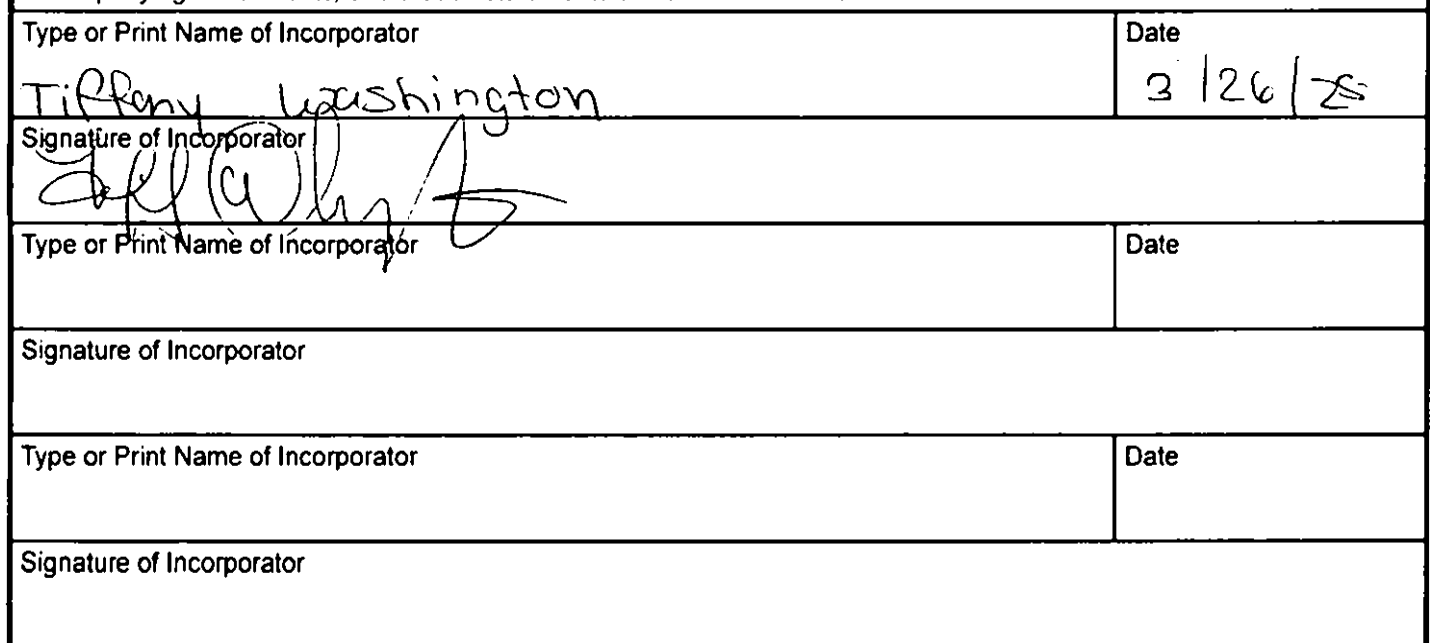 Type or Print Name of Incorporator
Date
Tiffany Washington
3/26/25
Signature of Incorporator
Type or Print Name of Incorporator
Date
Signature of Incorporator
Type or Print Name of Incorporator
Date
Signature of Incorporator